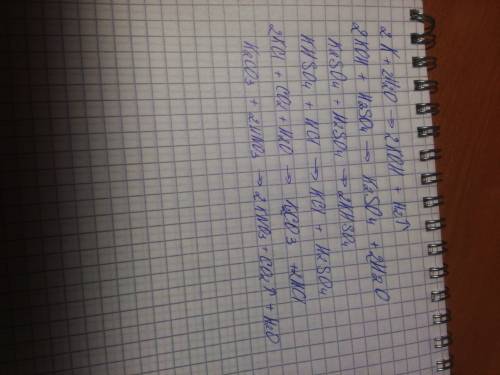 2K + 2H2O → 2KOH + H2↑
2KOH + H2SO4 → K2SO4 + 2H2O
K2SO4 + H2SO4 → 2KHSO4
KHSO4 + HCl → KCl + H2SO4
2KCl + CO2 + H2O → K2CO3 + 2HCl
K2CO3 + 2HNO3 → 2KNO3 + CO2↑ + H2O